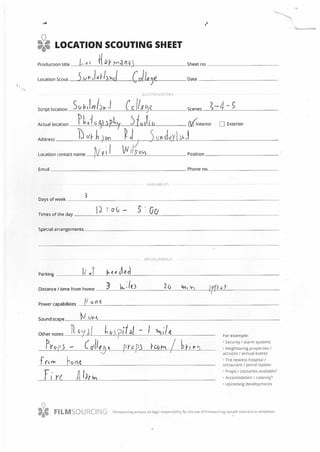 LOCATION SCOUTING SHEET
Production title Los Hermanos Sheet no.
Location Scout Sunderland College Date
Script location Sunderland College Scenes 3-4-5
Actual location Photography Studio Interior Exterior
Address Durham Rd, Sunderland
Location contact name Neil Wilson Position
Email Phone no.
AVAILABILITY
Days of week 3
Times of the day 12:00 - 5:00
Special arrangements
MISCELLANEOUS
Parking Not needed
Distance / time from home 3 miles 20 min
Power capabilities None
Soundscape None
Other notes Royal hospital - 1 mile
For example:
Props - College props room / bring
• Security / alarm systems
• Neighboring properties / activities / annual events
from home
• The nearest hospital / restaurant / petrol station
Fire Alarm
• Props / costumes available?
• Accomodation / catering?
• Upcoming developments
FILMSOURCING Filmsourcing accepts no legal responsibility for the use of Filmsourcing sample contracts or templates